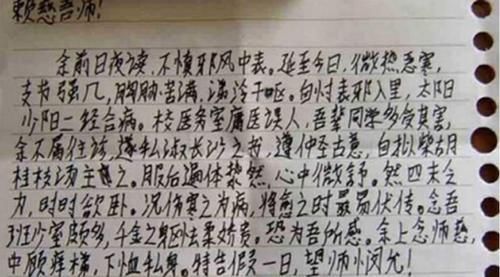 赖慈吾师!
余前日夜读,不慎邪风中表。延至今日,微热恶寒,
支节强几,胸胁苦满,涕泠干呕。自忖表邪入里,太阳
少阳二经合病。校医务室庸医误人,吾辈同学多受其害,
余不屑往诊,遂私淑长沙之书,遵仲圣古意,自拟柴胡
桂枝汤主之。服后遍体漐然,心中微舒。然四末乏
力,时时欲卧。况伤寒之为病,将愈之时最易伏传。念吾
班少室颇多,千金之身怯柔娇贵。恐为吾所感。余上念师慈,
中顾痒横,下恤私身。特告假一日,望师悯允!